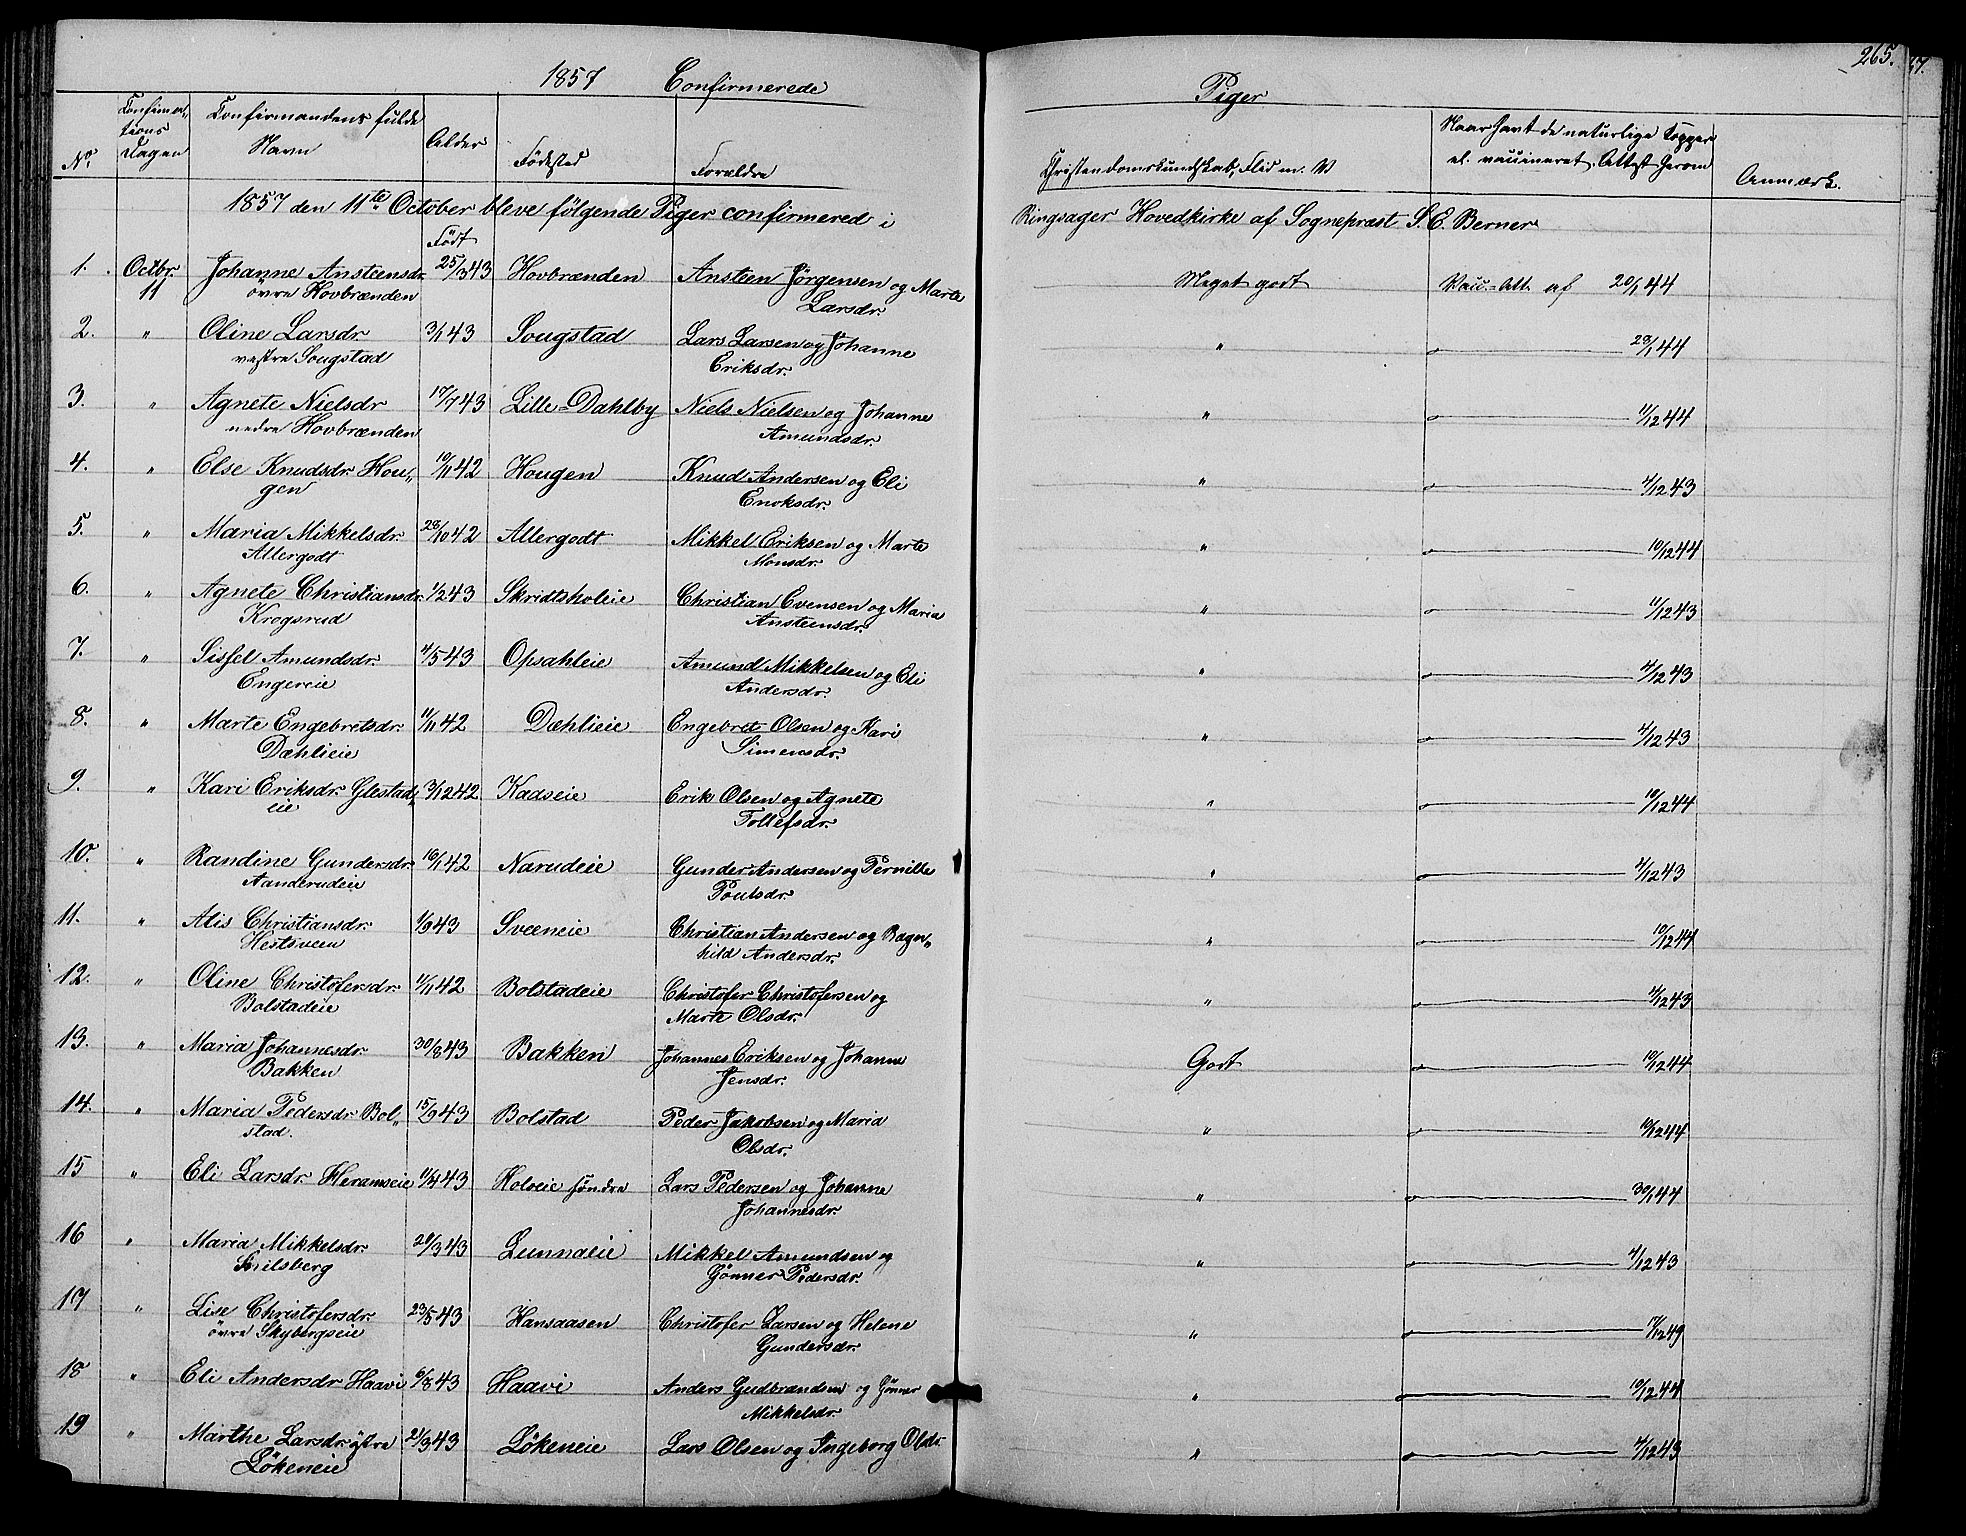 1857 Confirmerede
No. Confirma- tions Dagen Confirmandens fulde Navn Alder Födested Forældre
1857 den 11te October bleve følgende Piger confirmered i
Födt
1. Octbr. 11 Johanne Ansteensdr. 25/3 43 Hovbrænden Ansteen Jørgensen og Marte
övre Hovbrænden Larsdr.
2. " Oline Larsdr. 3/1 43 Sougstad Lars Larsen og Johanne
vestre Sougstad Eriksdr.
3. " Agnete Nielsdr 17/7 43 Lille-Dahlby Niels Nielsen og Johanne
nedre Hovbrænden Amundsdr.
4. " Else Knudsdr. Hou„ 10/11 42 Hougen Knud Andersen og Eli
gen Enoksdr.
5. " Maria Mikkelsdr. 28/10 42 Allergodt Mikkel Eriksen og Marte
Allergodt Monsdr.
6. " Agnete Christiansdr. 1/2 43 Skridtsholeie Christian Evensen og Maria
Krogsrud Ansteensdr.
7. " Sissel Amundsdr. 4/5 43 Opsahleie Amund Mikkelsen og Eli
Engereie Andersdr.
8. " Marte Engebretsdr. 11/11 42 Dæhlieie Engebret Olsen og Kari
Dæhlieie Simensdr.
9. " Kari Eriksdr. Glestad„ 3/12 42 Kaaseie Erik Olsen og Agnete
eie Tollefsdr.
10. " Randine Gundersdr. 16/1 42 Narudeie Gunder Andersen og Pernille
Aanderudeie Poulsdr.
11. " Alis Christiansdr. 1/9 43 Sveeneie Christian Andersen og Ragn„
Hestsveen hild Andersdr.
12. " Oline Christofersdr. 11/11 42 Bolstadeie Christofer Christofersen og
Bolstadeie Marte Olsdr.
13. " Maria Johannesdr. 30/8 43 Bakken Johannes Eriksen og Johanne
Bakken Jensdr.
14. " Maria Pedersdr. Bol„ 15/9 43 Bolstad Peder Jakobsen og Maria
stad. Olsdr.
15 " Eli Larsdr. Heramseie 11/4 43 Holoeie søndre Lars Pedersen og Johanne
Johannesdr.
16 " Maria Mikkelsdr. 20/3 43 Lunnaeie Mikkel Amundsen og
Smilsberg Gönner Pedersdr.
17 " Lise Christofersdr. 23/5 43 Hansaasen Christofer Larsen og Helene
övre Skybergseie Gundersdr.
18 " Eli Andersdr Haavi 6/8 43 Haavi Anders Gudbrandsen og Gönner
Mikkelsdr.
19 " Marthe Larsdr. östre 21/3 43 Lökeneie Lars Olsen og Ingeborg Olsdr
Lökeneie
265.
Piger
Christendomskundskab, Flid m. V Naar havt de naturlige Kopper
el. vaccineret. Attest herom Anmærk.
Ringsager Hovedkirke af Sognepræst S. E. Berner
Meget godt Vacc.-Att. af 20/1 44
" 28/1 44
" 11/12 44
" 4/12 43
" 10/12 44
" 11/12 43
" 4/12 43
" 4/12 43
" 10/12 44
" 4/12 43
" 10/12 44
" 4/12 43
Godt 10/12 44
" 10/12 44
" 30/1 44
" 4/12 43
" 17/12 49
" 10/12 44
" 4/12 43